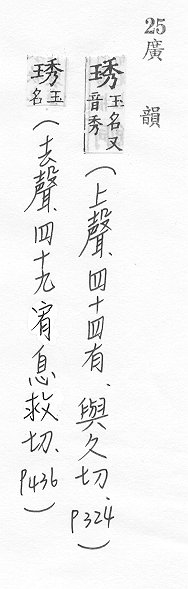 25廣韻
琇玉名又音秀(上聲、四十四有、與久切、P324)
琇玉名(去聲、四十九宥、息救切、P436)